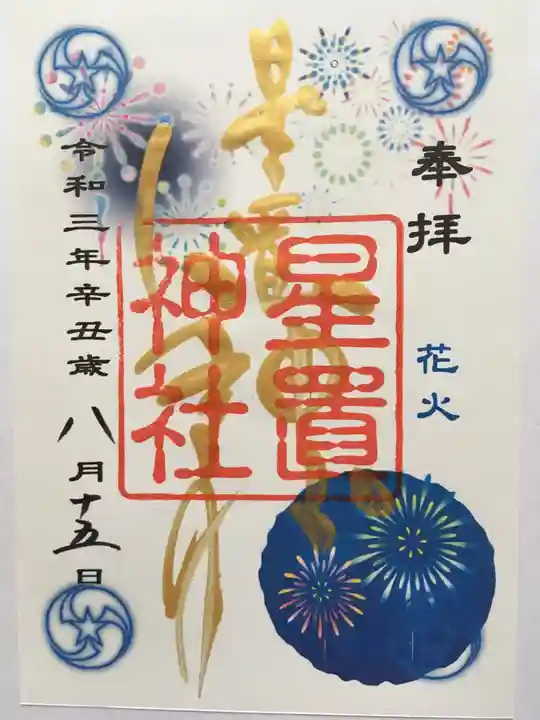 奉拝
花火
星置
神社
令和三年辛丑歳八月十五日